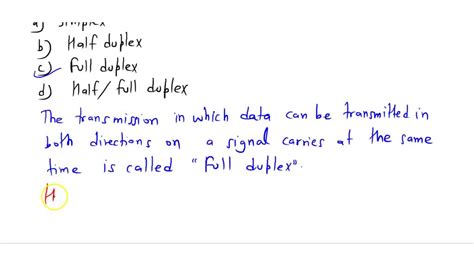 a) simplex
b) Half duplex
c) Full duplex
d) Half/full duplex
The transmission in which data can be transmitted in
both directions on a signal carries at the same
time is called "Full duplex".
H